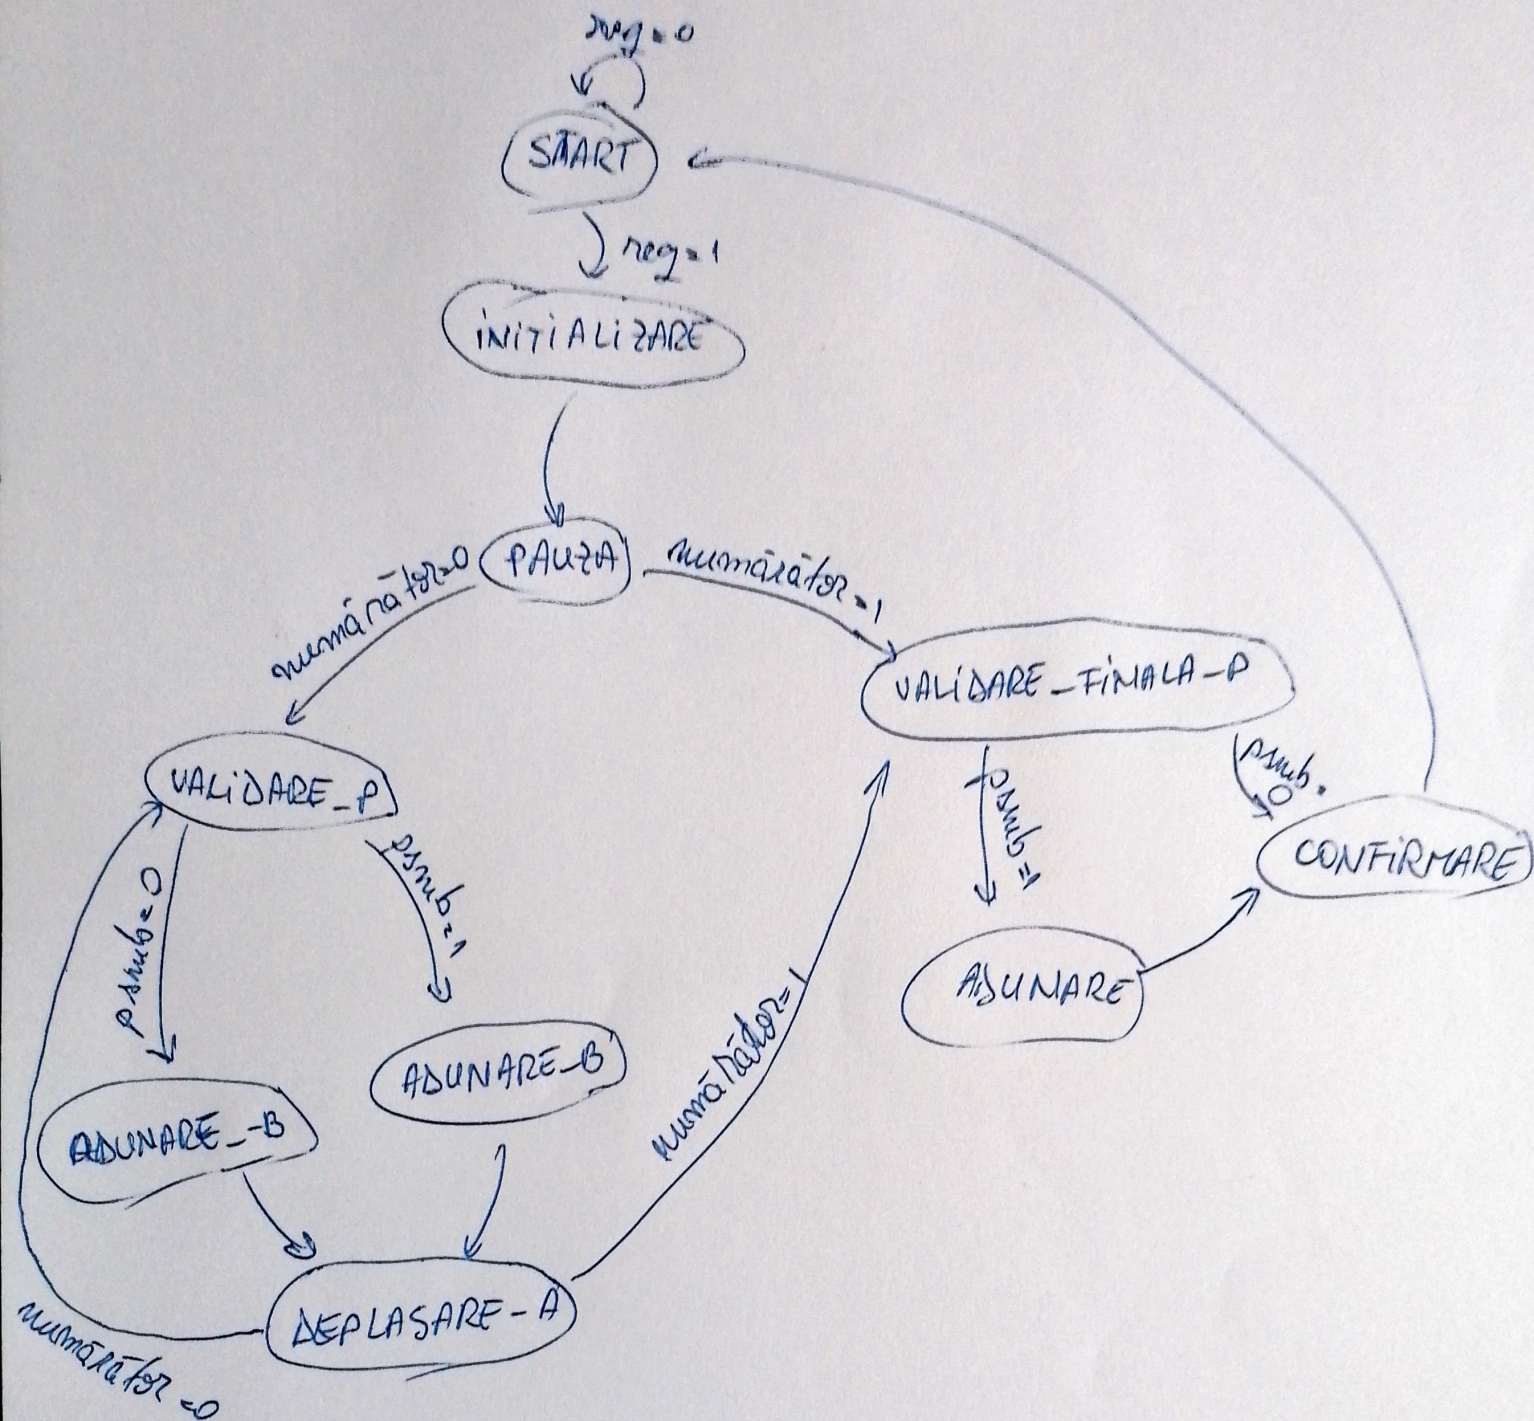 req=0
START
req=1
iNiTiALiZARE
PAUZA
numărător=0
numărător=1
VALiDARE_FiNALA_P
VALiDARE_P
psub=
0
psub=1
CONFiRMARE
psub=0
psub=1
ADUNARE
ADUNARE_B
ADUNARE_-B
numărător=1
DEPLASARE-A
numărător=0